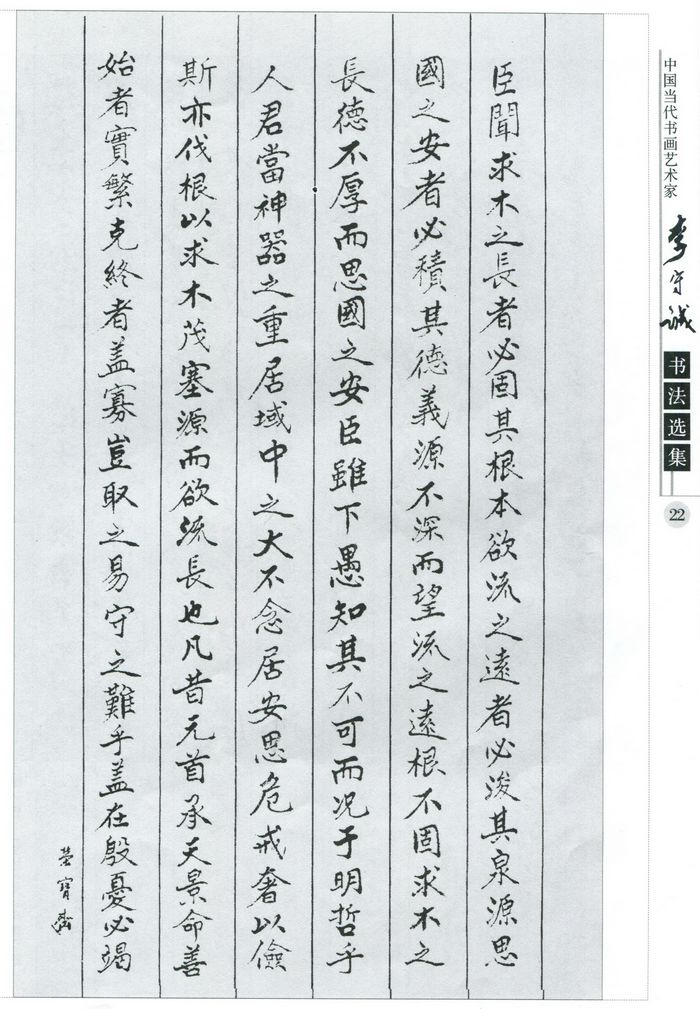 臣聞求木之長者必固其根本欲流之遠者必浚其泉源思
國之安者必積其德義源不深而望流之遠根不固求木之
長德不厚而思國之安臣雖下愚知其不可而況于明哲乎
人君當神器之重居域中之大不念居安思危戒奢以儉
斯亦伐根以求木茂塞源而欲流長也凡昔元首承天景命善
始者實繁克終者盖寡豈取之易守之難乎盖在殷憂必竭
荣寶齋
中国当代书画艺术家
李守诚
书法选集
22